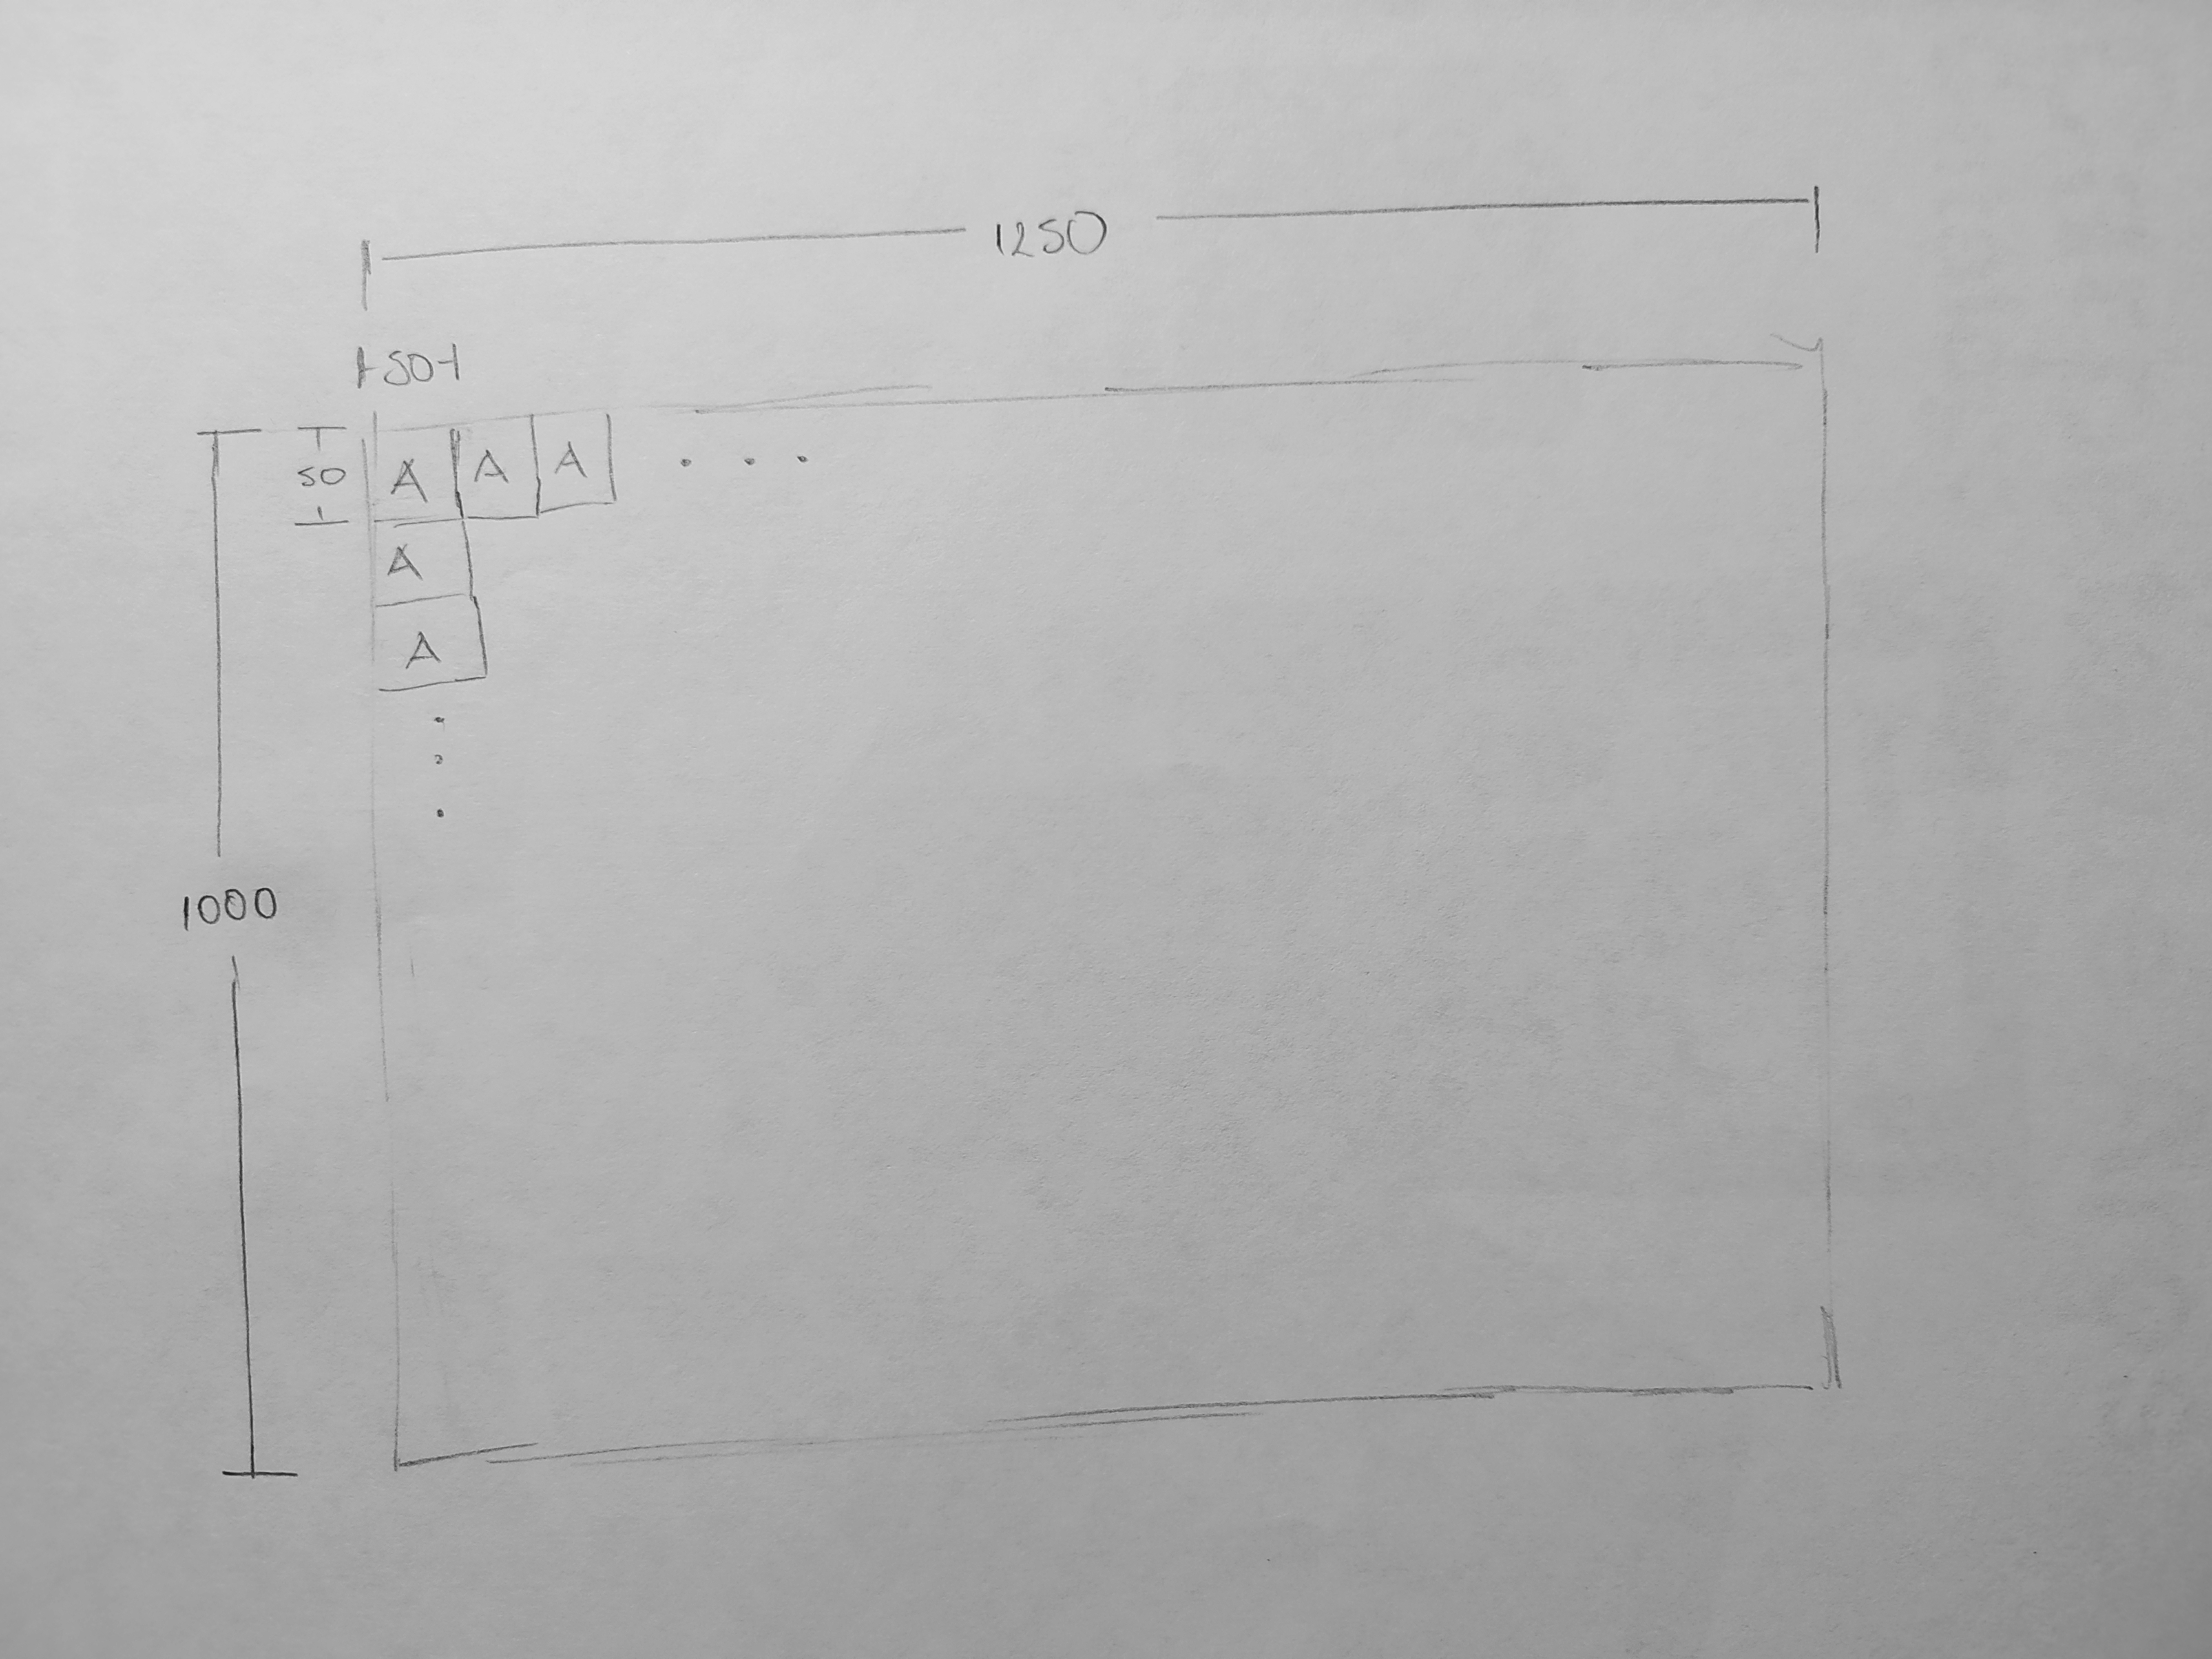 1250
50
50 A A A . . .
A
A
.
.
.
1000